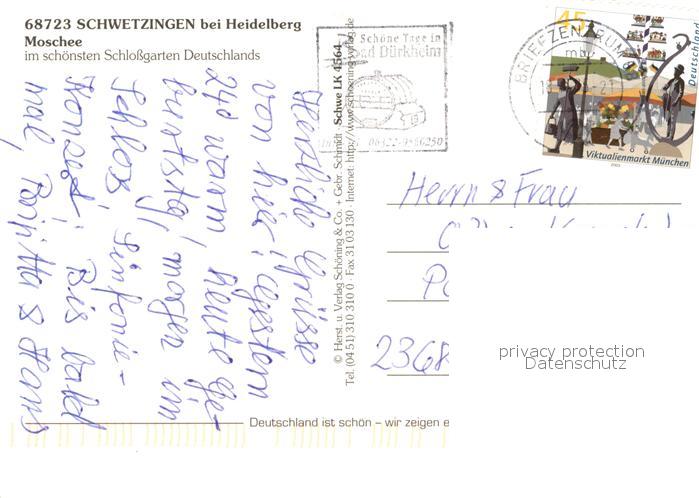 68723 SCHWETZINGEN bei Heidelberg
Moschee
im schönsten Schloßgarten Deutschlands
Herzliche Grüsse
von hier, gestern
24° warm, heute Ge-
burtstag, morgen im
Schloß Sinfonie-
Konzert! Bis bald
mal, Brigitta & Hans
© Herst. u. Verlag Schöning & Co. + Gebr. Schmidt · Schwe LK 4564
Tel. (04 51) 310 310 0 · Fax 31 03 130 · Internet: http://www.schoening-verlag.de
Schöne Tage in
Bad Dürkheim
06322-956250
BRIEFZENTRUM
45
Deutschland
Viktualienmarkt München
2003
Herrn & Frau
2368
privacy protection
Datenschutz
Deutschland ist schön – wir zeigen e